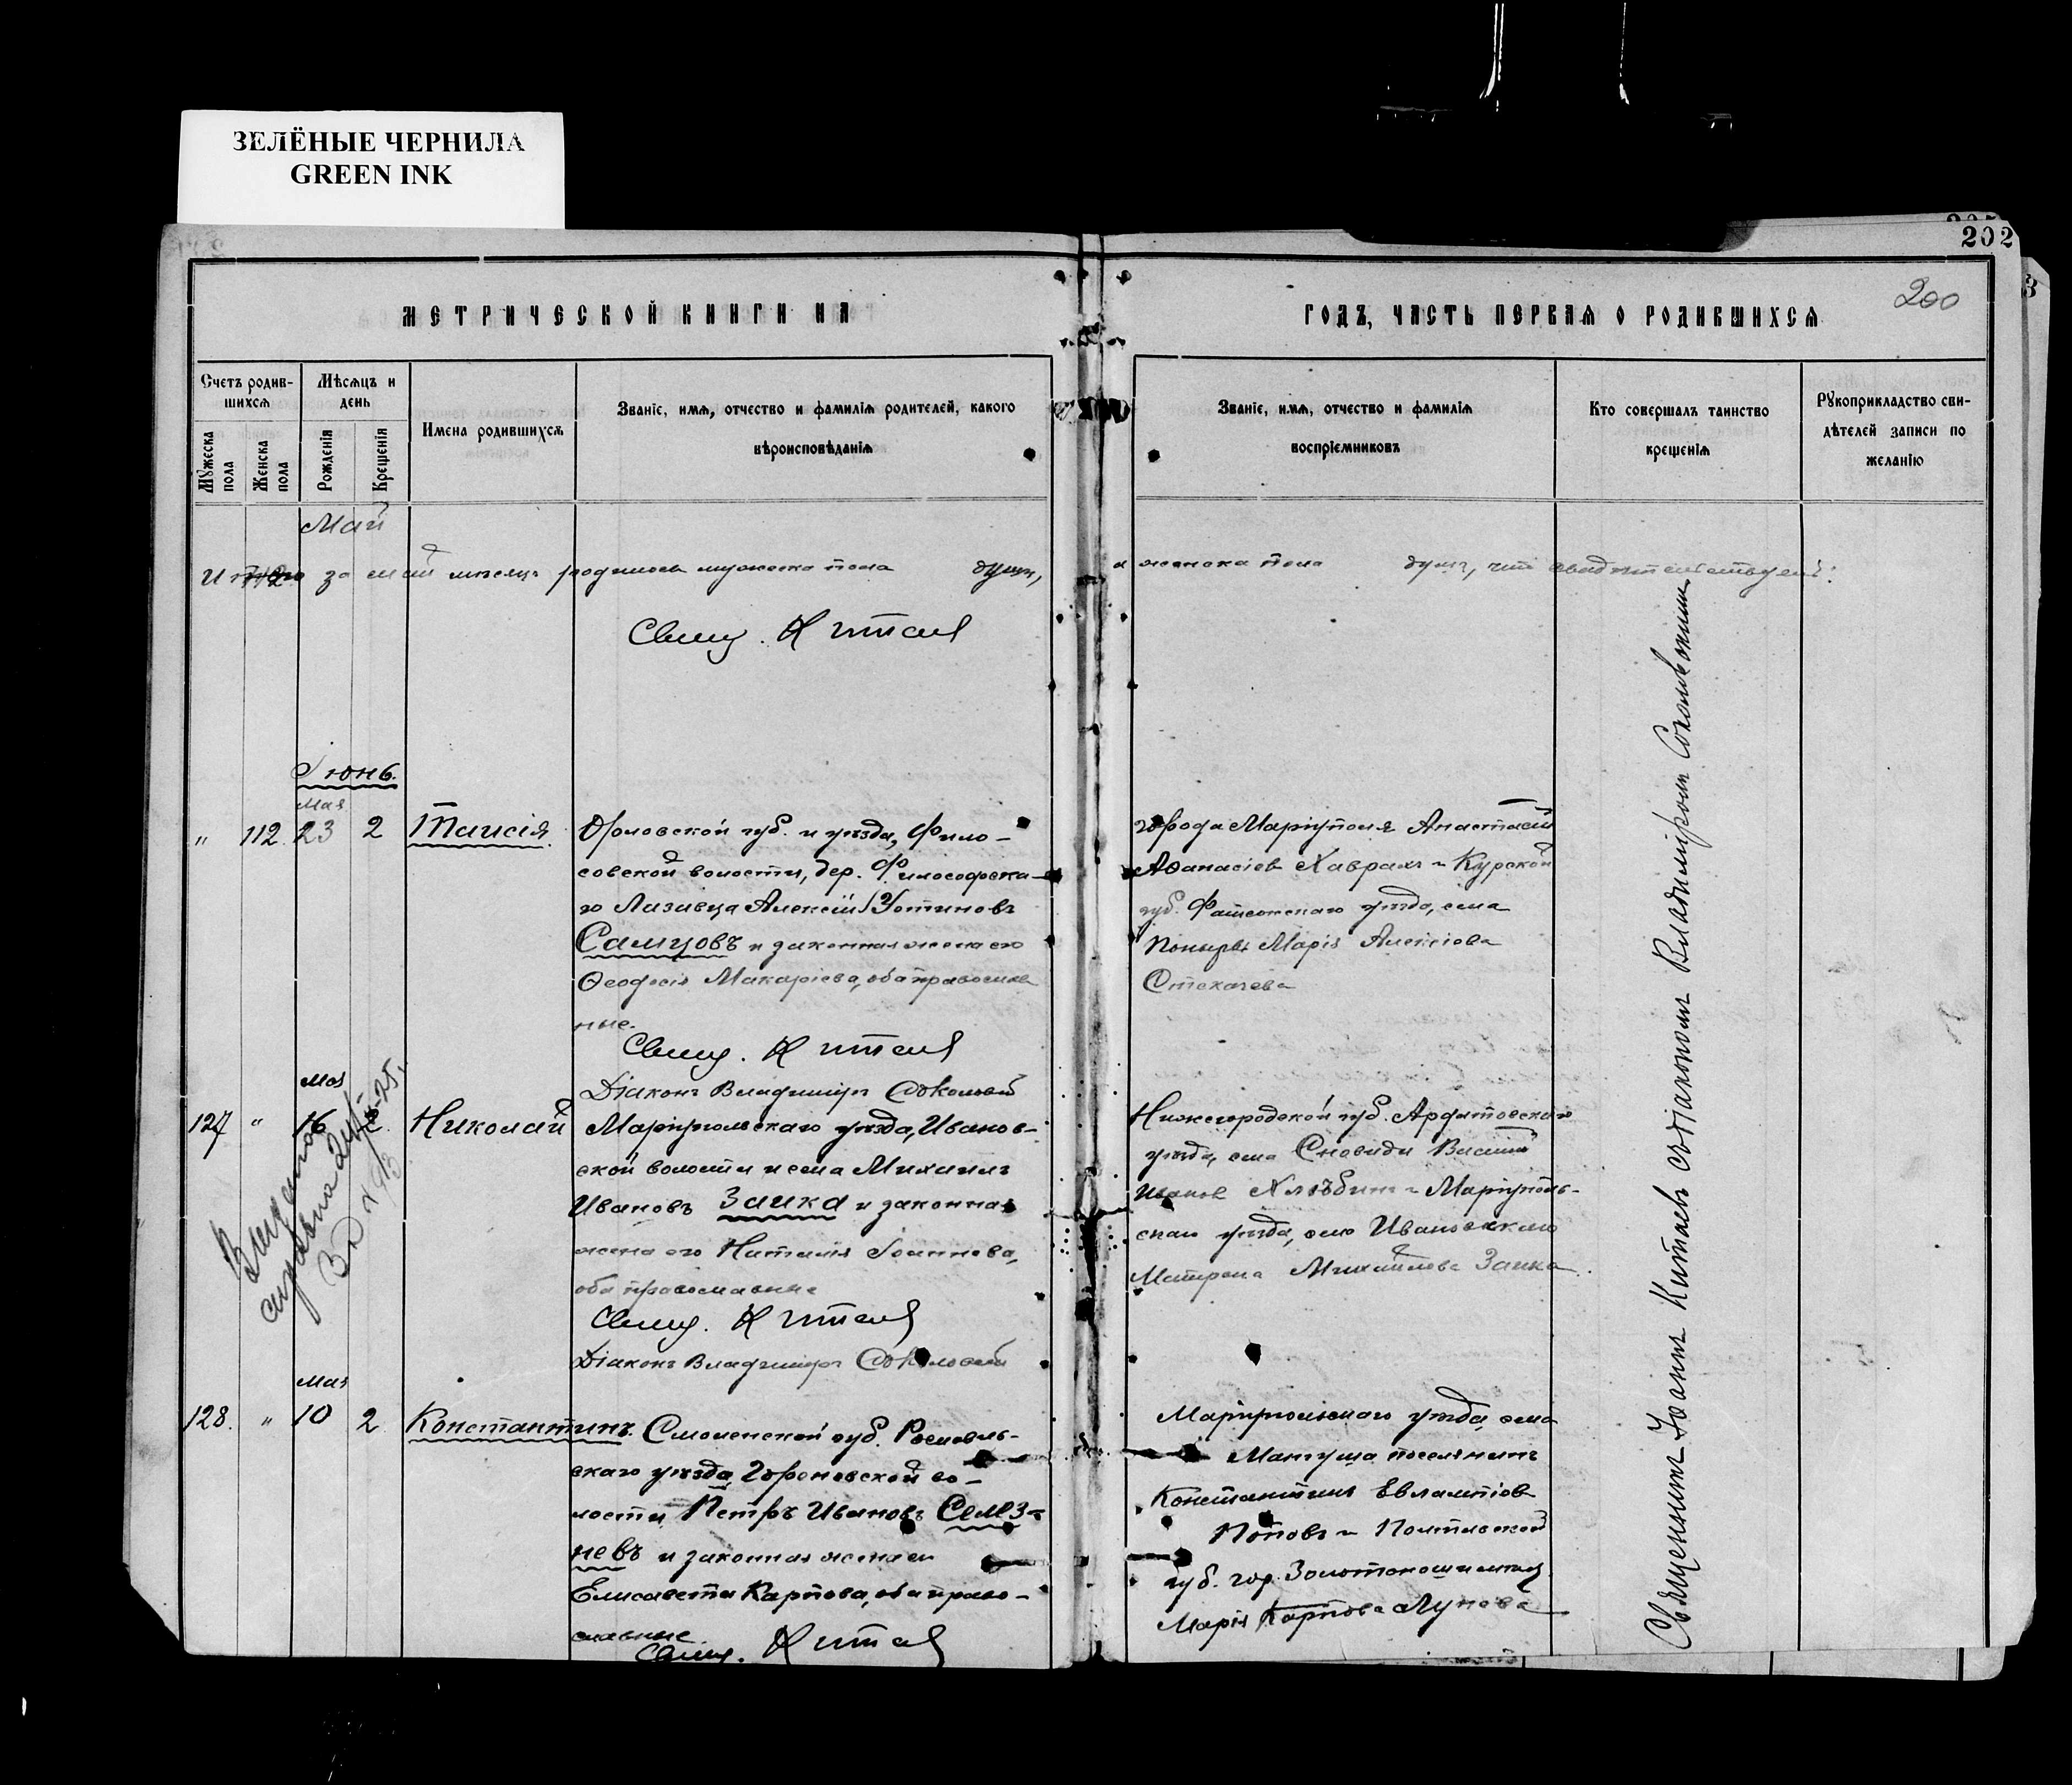 ЗЕЛЁНЫЕ ЧЕРНИЛА
GREEN INK
202
200
МЕТРИЧЕСКОЙ КНИГИ НА
ГОДЪ, ЧАСТЬ ПЕРВАЯ О РОДИВШИХСЯ
Счетъ родив-
шихся
Мѣсяцъ и
день
Мужеска
пола
Женска
пола
Рожденія
Крещенія
Имена родившихся
Званіе, имя, отчество и фамилія родителей, какого
вѣроисповѣданія
Званіе, имя, отчество и фамилія
воспріемниковъ
Кто совершалъ таинство
крещенія
Рукоприкладство сви-
дѣтелей записи по
желанію
Май
за май мѣсяцъ родилось мужеска пола душъ, а женска пола душъ, что свидѣтельствуемъ:
Свящ. Китаевъ
Іюнь.
Мая
„ 112. 23 2 Таисія.
Орловской губ. и уѣзда, Фило-
совской волости, дер. Философска-
го Лазавца Алексій Устиновъ
Самцовъ и законная жена его
Ѳеодосія Макаріева, оба православ
ные.
Свящ. Китаевъ
Діаконъ Владиміръ Соколовскій
города Маріуполя Анастасій
Аѳанасіевъ Хавралъ и Курской
губ. Фатежскаго уѣзда, села
Понырей Марія Алексіева
Стекачева
Мая
127 „ 16 2. Николай
Маріупольскаго уѣзда, Иванов-
ской волости и села Михаилъ
Ивановъ Заика и законная
жена его Наталія Іоаннова,
оба православные
Свящ. Китаевъ
Діаконъ Владиміръ Соколовскій
Нижегородской губ. Ардатовскаго
уѣзда, села Сноведи Василій
Ивановъ Хлѣбинъ и Маріуполь-
скаго уѣзда, села Ивановскаго
Матрона Михайлова Заика.
Мая
128. „ 10 2 Константинъ.
Смоленской губ. Рославль-
скаго уѣзда, Гореновской во-
лости Петръ Ивановъ Селез-
невъ и законная жена его
Елисавета Карпова, оба право-
славные.
Свящ. Китаевъ
Маріупольскаго уѣзда, села
Мангуша поселянинъ
Константинъ Евлампіовъ
Поповъ и Полтавской
губ. гор. Золотоноши
Марія Карпова Лунева
Священникъ Іоаннъ Китаевъ съ діакономъ Владиміромъ Соколовскимъ